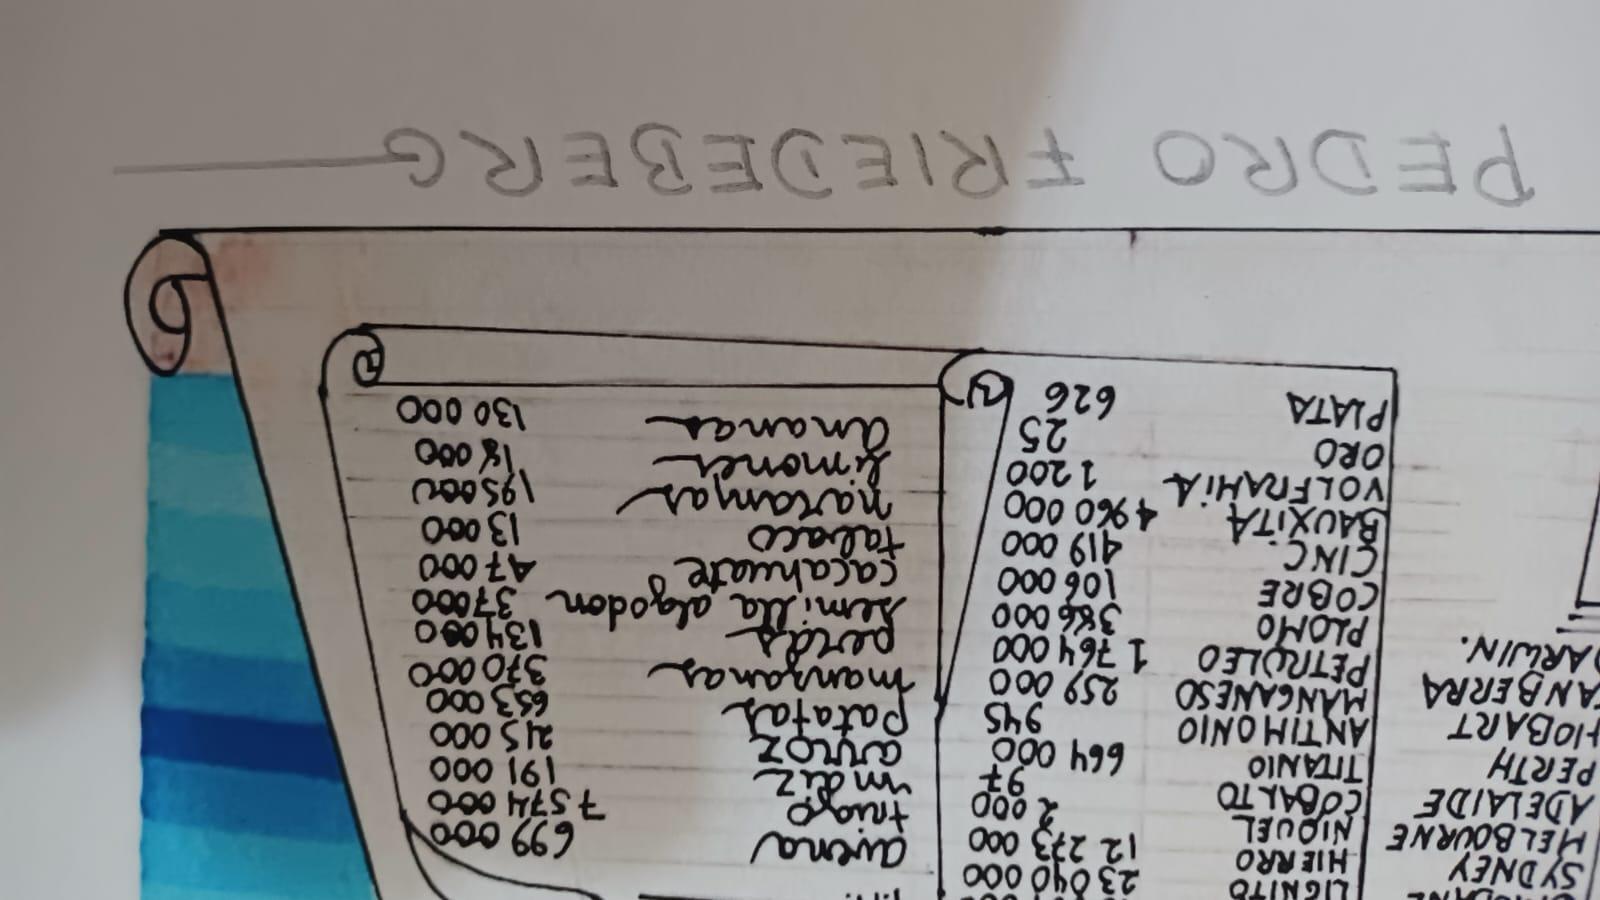 SYDNEY
MELBOURNE
ADELAIDE
PERTH
HOBART
ANBERRA
DARWIN.
LIGNITO 23 040 000
HIERRO 12 273 000
NIQUEL 2 000
COBALTO 97
TITANIO 664 000
ANTIMONIO 945
MANGANESO 259 000
PETROLEO 1 764 000
PLOMO 386 000
COBRE 106 000
CINC 419 000
BAUXITA 4 960 000
VOLFRAMIA 1 200
ORO 25
PLATA 626
avena 699 000
trigo 7 574 000
maiz 191 000
arroz 245 000
patatas 653 000
manzanas 370 000
peras 134 000
semilla algodon 37000
cacahuate 47 000
tabaco 13 000
naranjas 195000
limones 18 000
ananas 130 000
PEDRO FRIEDEBERG